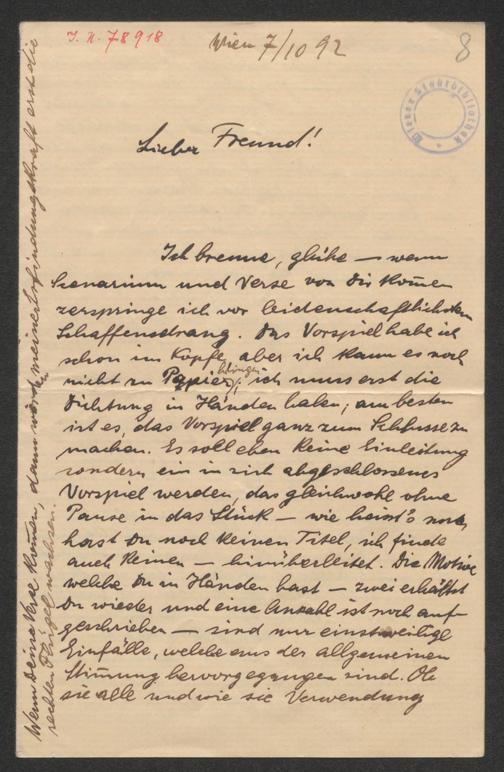 I. N. 78918
Wien 7/10 92
8
Wiener Stadtbibliothek
Lieber Freund!
Ich brenne, glühe — wenn
Scenarium und Verse von Dir kom̄en
zerspringe ich vor leidenschaftlichstem
Schaffensdrang. Das Vorspiel habe ich
schon im Kopfe, aber ich kann es noch
nicht zu Papier bringen; ich muss erst die
Dichtung in Händen haben; am besten
ist es, das Vorspiel ganz zum Schlusse zu
machen. Es soll eben keine Einleitung
sondern ein in sich abgeschlossenes
Vorspiel werden, das gleichwohl ohne
Pause in das Stück — wie heisst's noch,
hast Du noch keinen Titel, ich finde
auch keinen — hinüberleitet. Die Motive
welche Du in Händen hast — zwei erhältst
Du wieder und eine Anzahl ist noch auf-
geschrieben — sind nur einstweilige
Einfälle, welche aus der allgemeinen
Stim̄ung hervorgegangen sind. Ob
sie alle und wie sie Verwendung
Wenn Deine Verse kom̄en, dann werden meiner Erfindungskraft erst die
rechten Flügel wachsen.